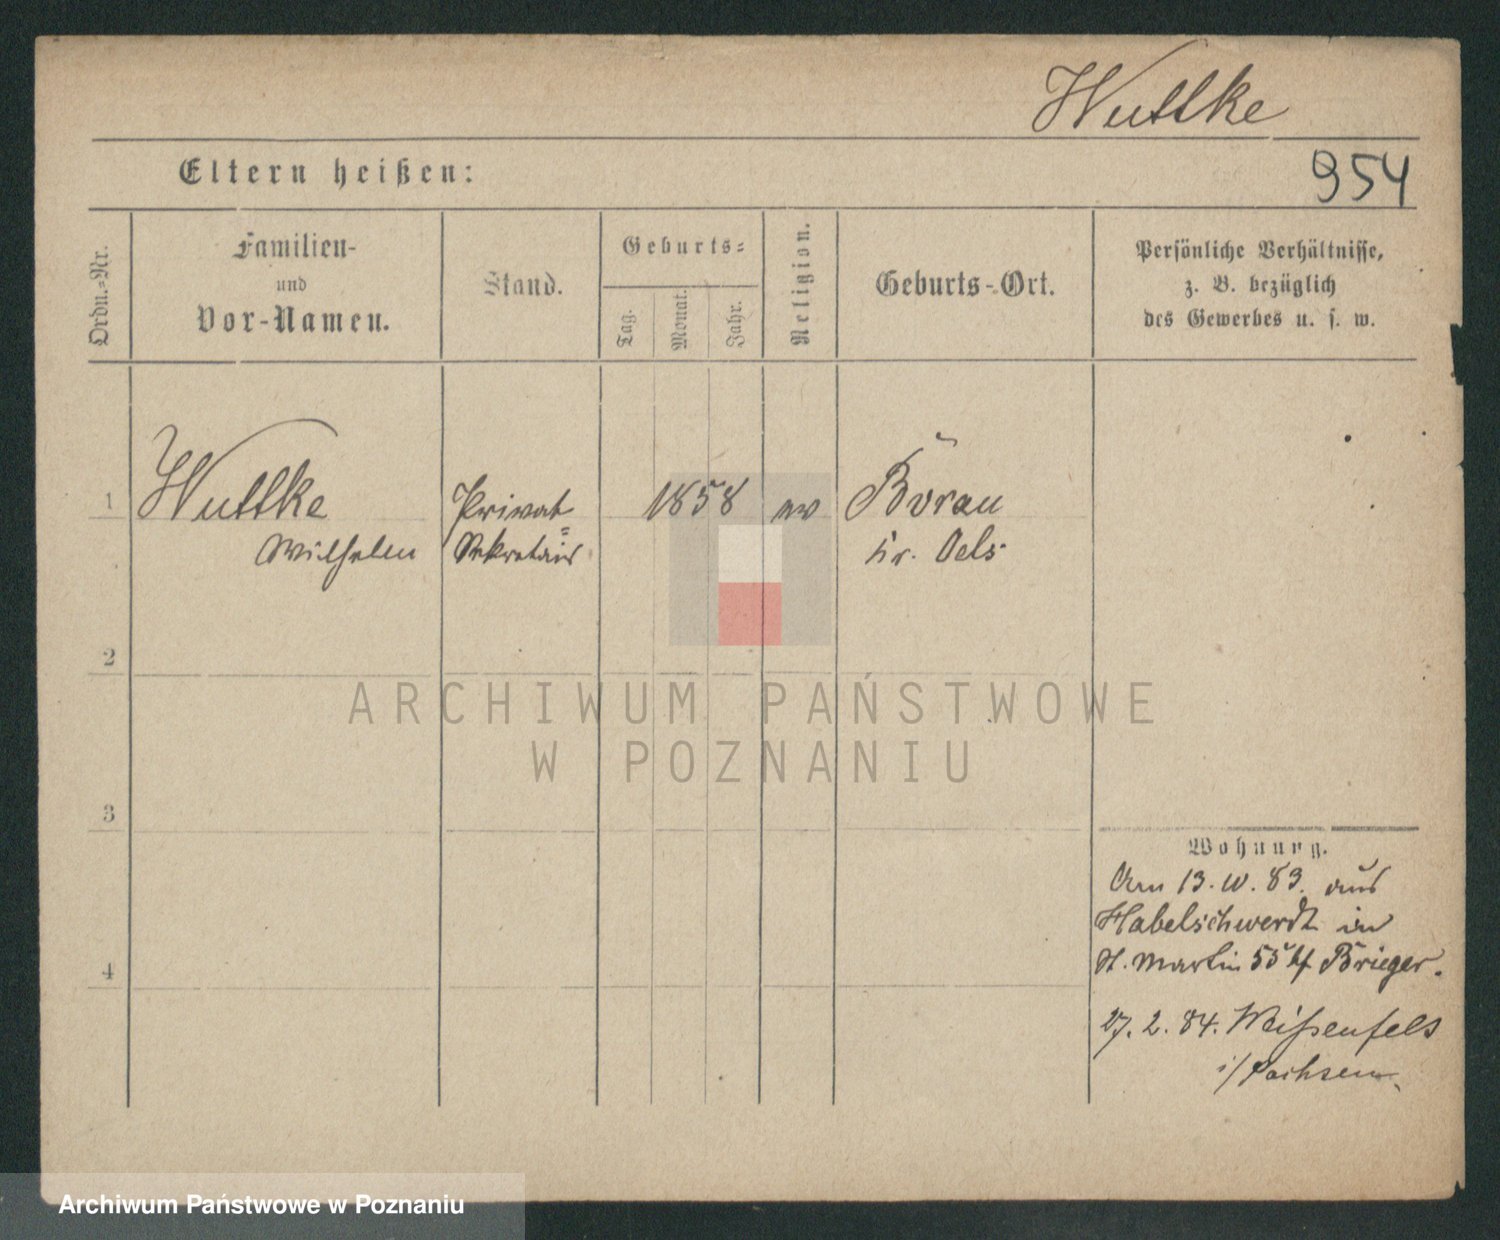 Wuttke
954
Eltern heißen:
Ordn.=Nr.
Familien-
und
Vor-Namen.
Stand.
Geburts=
Tag.
Monat.
Jahr.
Religion.
Geburts-Ort.
Persönliche Verhältnisse,
z. B. bezüglich
des Gewerbes u. s. w.
1
Wuttke
Wilhelm
Privat
Sekretair
1858
ev
Borau
Kr. Oels
2
3
4
Wohnung.
Am 13. 10. 83. aus
Habelschwerdt in
St. Martin 55 Brieger.
27. 2. 84. Weißenfels
i/Sachsen.
ARCHIWUM PAŃSTWOWE
W POZNANIU
Archiwum Państwowe w Poznaniu